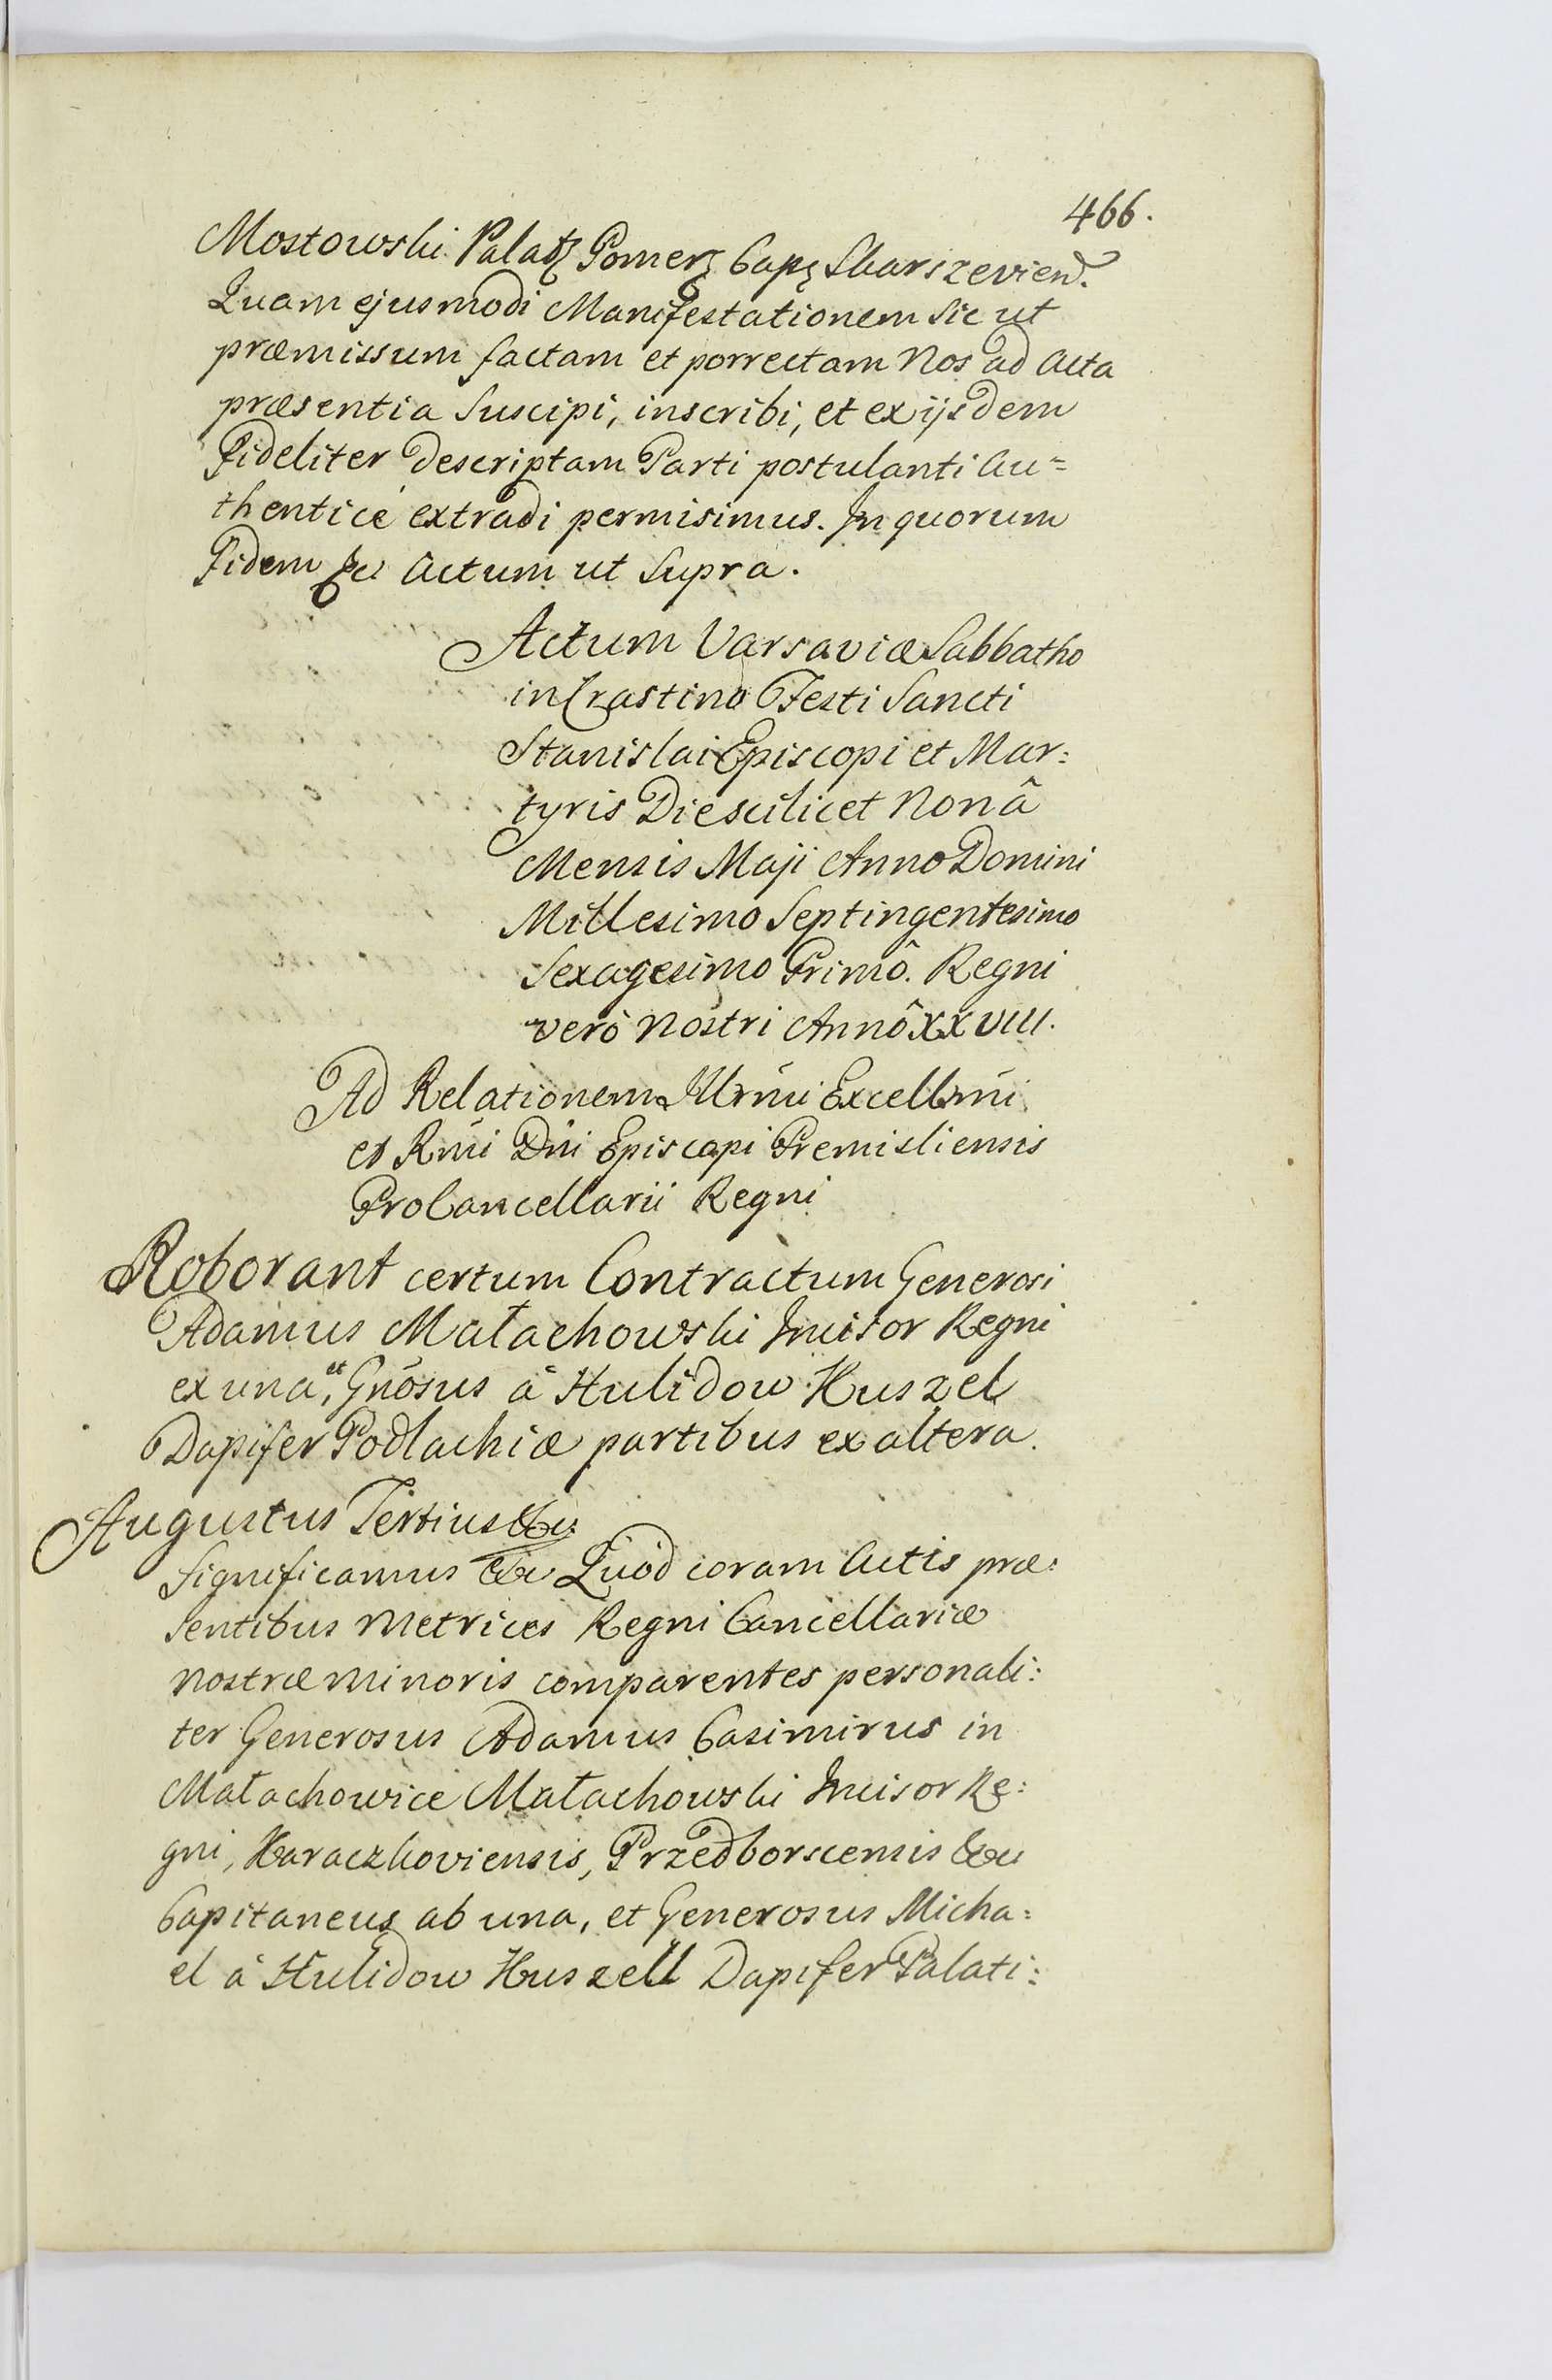 466.
Mostowski Palat Pomer Cap Skarszevien.
Quam ejusmodi Manifestationem sic ut
præmissum factam et porrectam Nos ad Acta
præsentia suscipi, inscribi, et ex ijsdem
Fideliter descriptam Parti postulanti Au=
thenticè extradi permisimus. In quorum
Fidem &c Actum ut supra.
Actum Varsaviæ Sabbatho
in Crastino Festi Sancti
Stanislai Episcopi et Mar:
tyris Die scilicet Nonâ
Mensis Maji Anno Domini
Millesimo Septingentesimo
Sexagesimo Primô. Regni
verò Nostri Annô XXVIII.
Ad Relationem Illrmi Excellmi
et Rmi Dni Episcopi Premisliensis
ProCancellarii Regni
Roborant certum Contractum Generosi
Adamus Małachowski Incisor Regni
ex una, et Gnõsus à Hulidow Huszel
Dapifer Podlachiæ partibus ex altera.
Augustus Tertius &c.
Significamus &c Quòd coram Actis præ:
sentibus Metrices Regni Cancellariæ
Nostræ Minoris comparentes personali:
ter Generosus Adamus Casimirus in
Małachowice Małachowski Incisor Re:
gni, Karaczkoviensis, Przedborscensis &c
Capitaneus ab una, et Generosus Micha:
el à Hulidow Huszell Dapifer Palati: